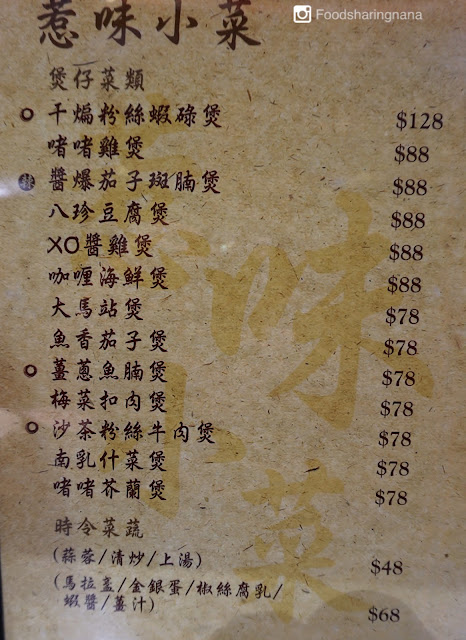 Foodsharingnana
惹味小菜
煲仔菜類
干煸粉絲蝦碌煲 $128
啫啫雞煲 $88
醬爆茄子斑腩煲 $88
八珍豆腐煲 $88
XO醬雞煲 $88
咖喱海鮮煲 $88
大馬站煲 $78
魚香茄子煲 $78
薑蔥魚腩煲 $78
梅菜扣肉煲 $78
沙茶粉絲牛肉煲 $78
南乳什菜煲 $78
啫啫芥蘭煲 $78
時令菜蔬
(蒜蓉/清炒/上湯) $48
(馬拉盞/金銀蛋/椒絲腐乳/
蝦醬/薑汁) $68
味
小
菜